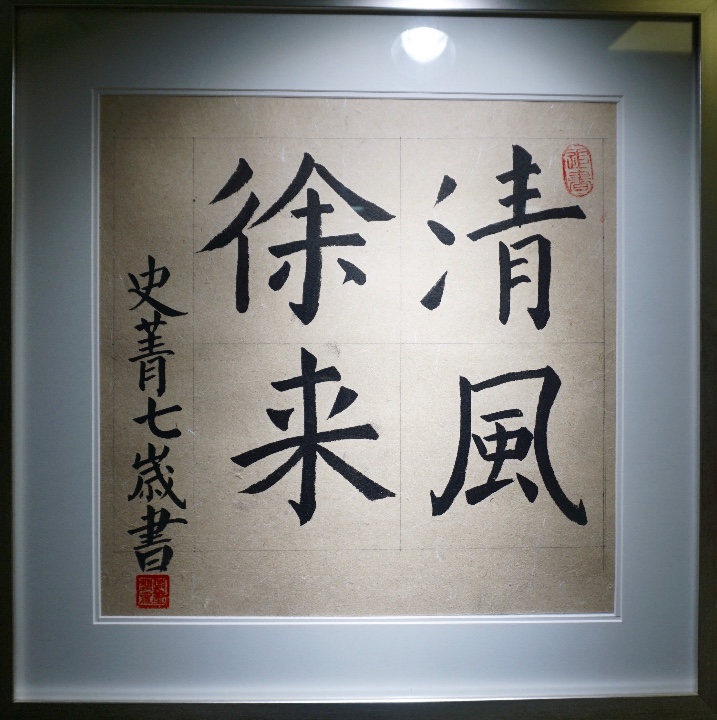 清風
徐来
史菁七歳書